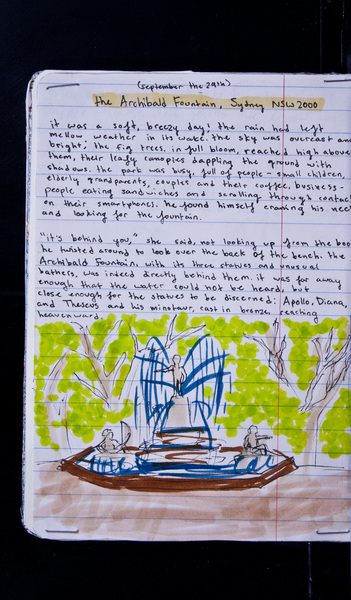 (september the 29th)
the Archibald Fountain, Sydney NSW 2000
it was a soft, breezy day; the rain had left
mellow weather in its wake. the sky was overcast and
bright; the fig trees, in full bloom, reached high above
them, their leafy canopies dappling the ground with
shadows. the park was busy, full of people - small children,
elderly grandparents, couples and their coffee, business-
people eating sandwiches and scrolling through contacts
on their smartphones. he found himself craning his neck
and looking for the fountain.
"it's behind you," she said, not looking up from the book.
he twisted around to look over the back of the bench. the
Archibald Fountain, with its three statues and unusual
bathers, was indeed directly behind them. it was far away
enough that the water could not be heard, but
close enough for the statues to be discerned: Apollo, Diana,
and Theseus and his minotaur, cast in bronze, reaching
heavenward.